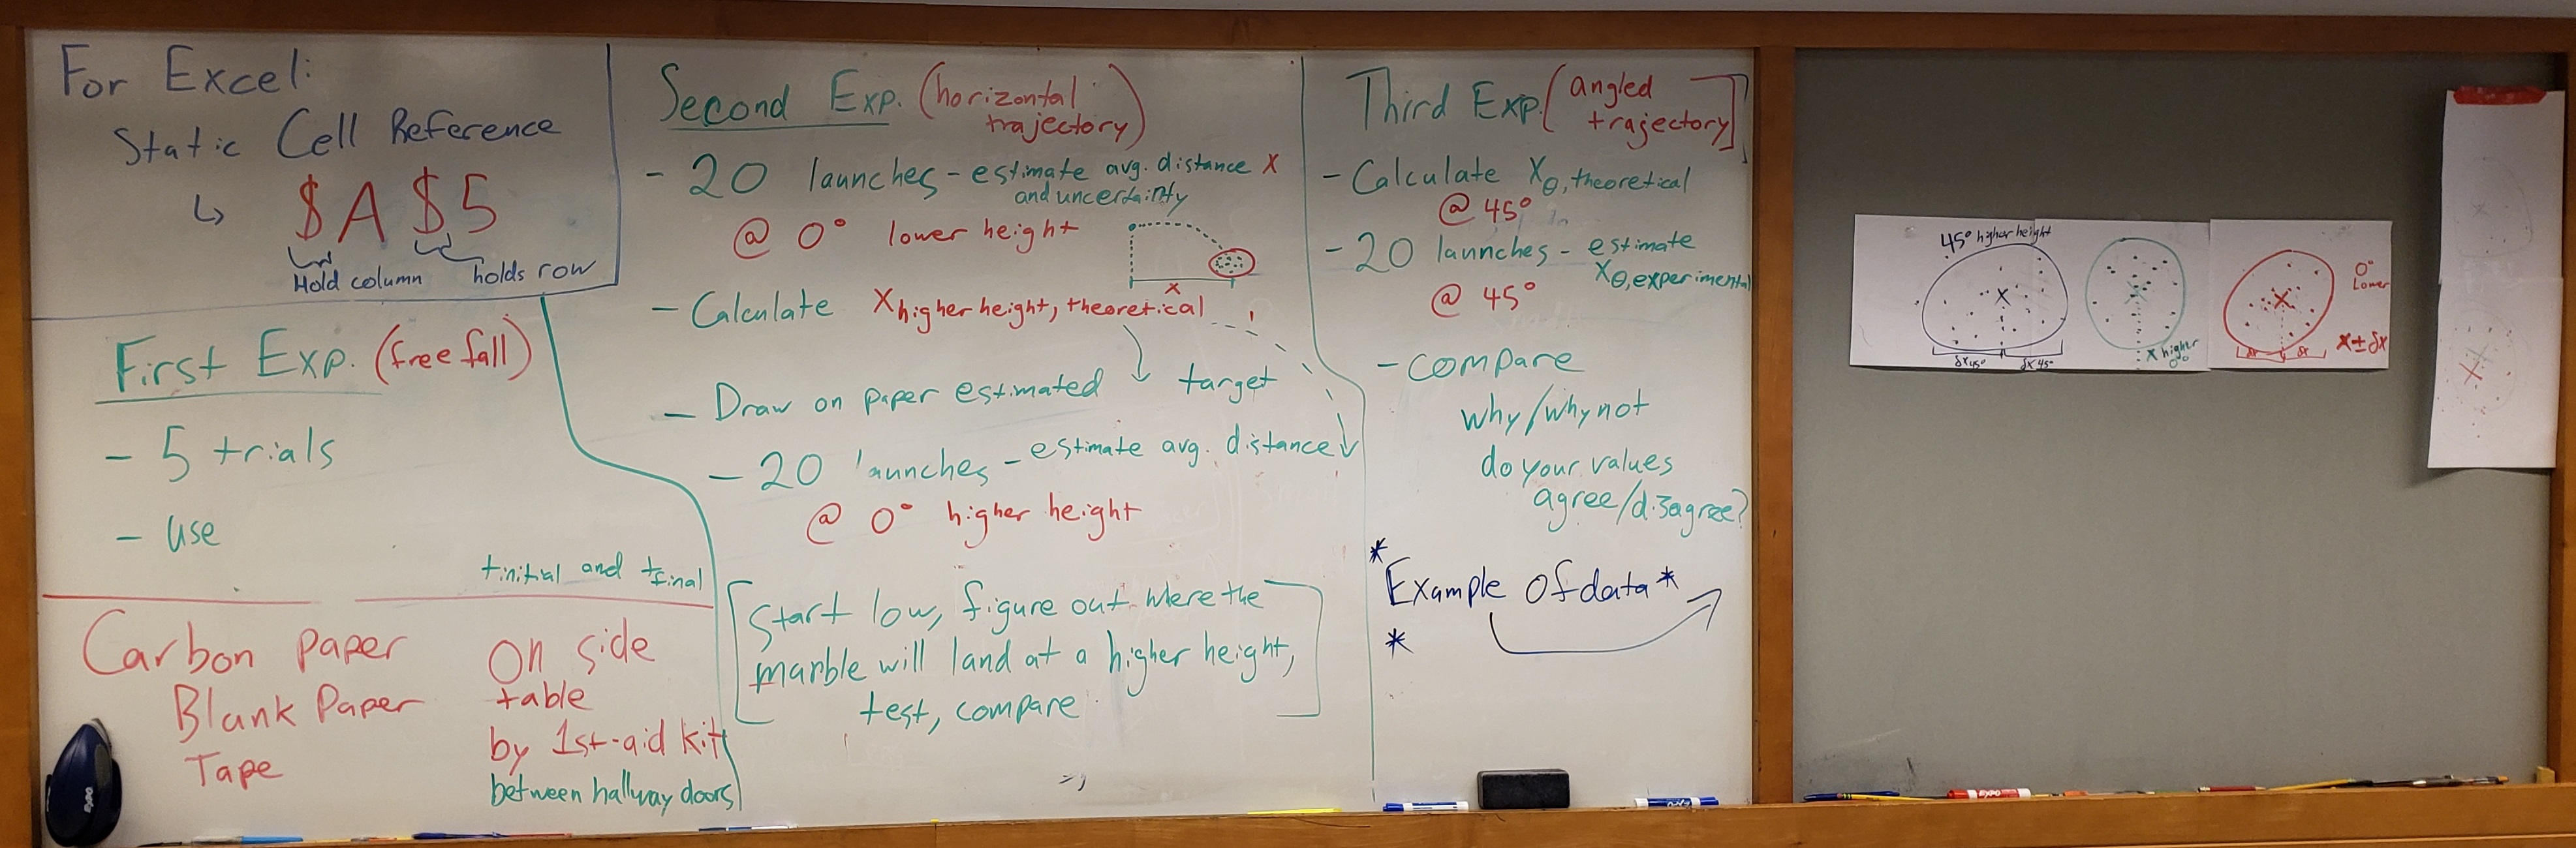 For Excel:
Static Cell Reference
↳ $A$5
Hold column
holds row
First Exp. (free fall)
- 5 trials
- use
tinitial and tfinal
Carbon paper
Blank Paper
Tape
On side
table
by 1st-aid kit
between hallway doors
Second Exp. (horizontal
trajectory)
- 20 launches - estimate avg. distance x
and uncertainity
@ 0° lower height
x
- Calculate Xhigher height, theoretical
- Draw on paper estimated target
- 20 launches - estimate avg. distance
@ 0° higher height
[Start low, figure out where the
marble will land at a higher height,
test, compare]
Third Exp. [angled
trajectory]
- Calculate Xθ, theoretical
@ 45°
- 20 launches - estimate
Xθ, experimental
@ 45°
- compare
why/why not
do your values
agree/disagree?
*
Example of data*
*
45° higher height
X
δx45° δx45°
X higher
0°
X
0°
Lower
δx δx
x±δx
EXPO